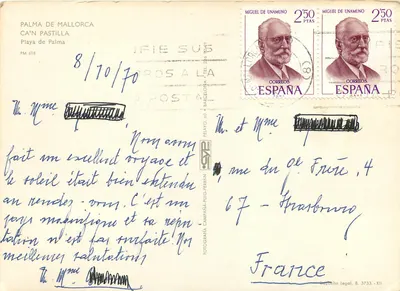 PALMA DE MALLORCA
CA'N PASTILLA
Playa de Palma
8/10/70
M. Mme
Nous avons
fait un excellent voyage et
le soleil était bien entendu
au rendez-vous. C'est un
pays magnifique et sa répu-
tation n'est pas surfaite. Nos
meilleures salutations
M. Mme
MIGUEL DE UNAMUNO
2,50 PTAS
CORREOS
ESPAÑA
MIGUEL DE UNAMUNO
2,50 PTAS
CORREOS
ESPAÑA
M. et Mme
rue du Gl Frère, 4
67 - Strasbourg
France